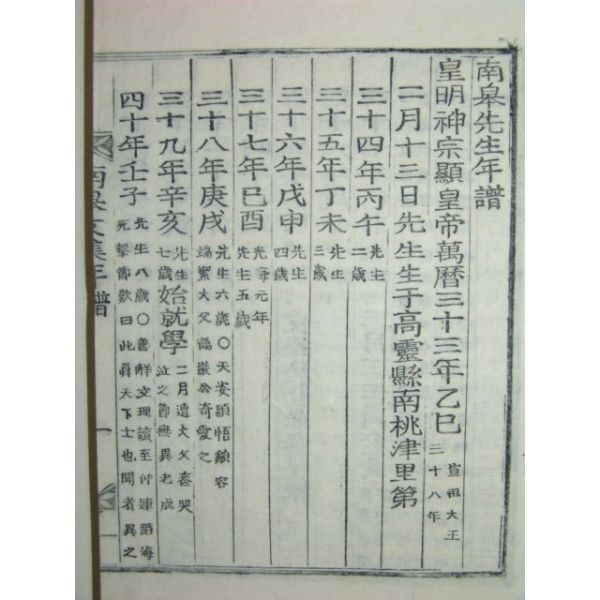 南皐先生年譜
皇明神宗顯皇帝萬曆三十三年乙巳 宣祖大王三十八年
二月十三日先生生于高靈縣南桃津里第
三十四年丙午 先生二歲
三十五年丁未 先生三歲
三十六年戊申 先生四歲
三十七年己酉 光海元年先生五歲
三十八年庚戌 先生六歲○天姿穎悟 容端 大父 巖公奇愛之
三十九年辛亥 先生七歲始就學 二月遭大父喪哭泣之節無異老成
四十年壬子 先生八歲○善解文理讀至仲連蹈海死擊節歎曰此眞天下士也聞者異之
南皐文集年譜 一